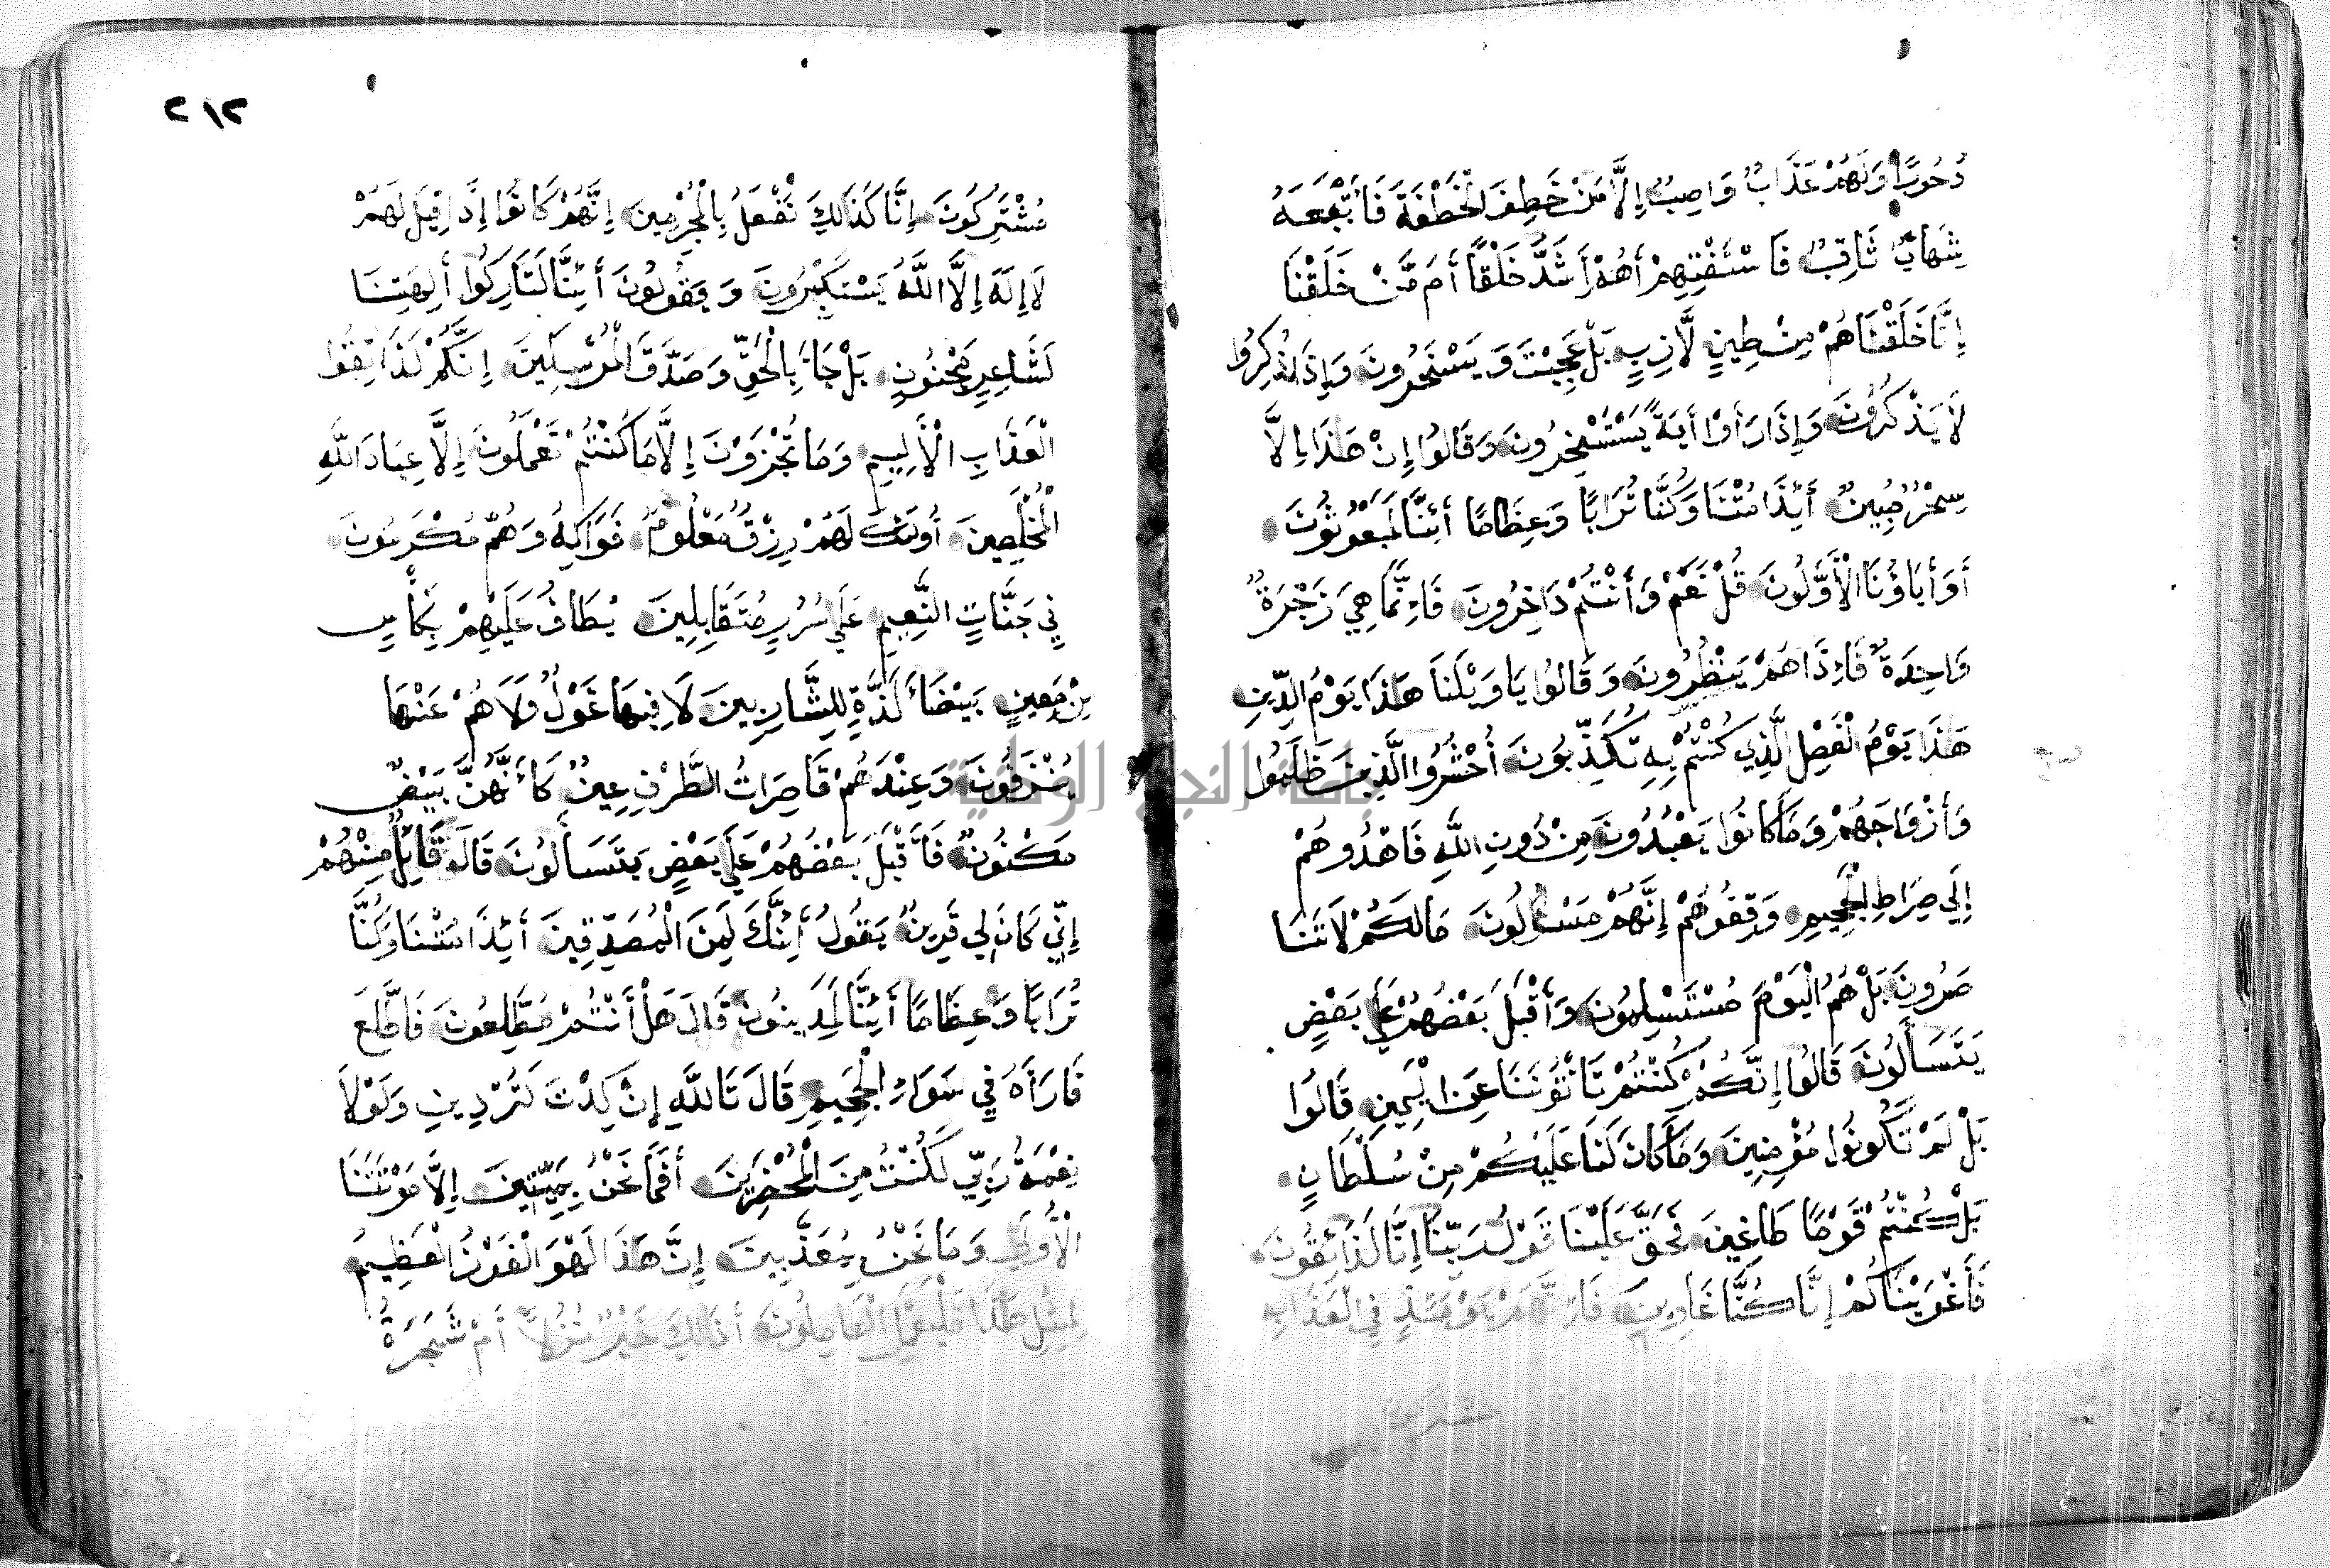 دُحُورًا وَلَهُمْ عَذَابٌ وَاصِبٌ إِلَّا مَنْ خَطِفَ الْخَطْفَةَ فَأَتْبَعَهُ
شِهَابٌ ثَاقِبٌ فَاسْتَفْتِهِمْ أَهُمْ أَشَدُّ خَلْقًا أَم مَّنْ خَلَقْنَا
إِنَّا خَلَقْنَاهُمْ مِنْ طِينٍ لَّازِبٍ بَلْ عَجِبْتَ وَيَسْخَرُونَ وَإِذَا ذُكِّرُوا
لَا يَذْكُرُونَ وَإِذَا رَأَوْا أَيَةً يَسْتَسْخِرُونَ وَقَالُوا إِنْ هَذَا إِلَّا
سِحْرٌ مُبِينٌ أَيْذَا مِتْنَا وَكُنَّا تُرَابًا وَعِظَامًا أَئِنَّا لَمَبْعُوثُونَ
أَوَ أَبَاؤُنَا الْأَوَّلُونَ قُلْ نَعَمْ وَأَنْتُمْ دَاخِرُونَ فَإِنَّمَا هِيَ زَجْرَةٌ
وَاحِدَةٌ فَإِذَا هُمْ يَنْظُرُونَ وَقَالُوا يَا وَيْلَنَا هَذَا يَوْمُ الدِّينِ
هَذَا يَوْمُ الْفَصْلِ الَّذِي كُنْتُمْ بِهِ تُكَذِّبُونَ أُحْشُرُوا الَّذِينَ ظَلَمُوا
وَأَزْوَاجَهُمْ وَمَا كَانُوا يَعْبُدُونَ مِنْ دُونِ اللَّهِ فَاهْدُوهُمْ
إِلَى صِرَاطِ الْجَحِيمِ وَقِفُوهُمْ إِنَّهُمْ مَسْئُولُونَ مَا لَكُمْ لَا تَنَا
صَرُونَ بَلْ هُمُ الْيَوْمَ مُسْتَسْلِمُونَ وَأَقْبَلَ بَعْضُهُمْ عَلَى بَعْضٍ
يَتَسَأَلُونَ قَالُوا إِنَّكُمْ كُنْتُمْ تَأْتُونَنَا عَنِ الْيَمِينِ قَالُوا
بَلْ لَمْ تَكُونُوا مُؤْمِنِينَ وَمَا كَانَ لَنَا عَلَيْكُمْ مِنْ سُلْطَانٍ
بَلْ كُنْتُمْ قَوْمًا طَاغِينَ فَحَقَّ عَلَيْنَا قَوْلُ رَبِّنَا إِنَّا لَذَائِقُونَ
فَأَغْوَيْنَاكُمْ إِنَّا كُنَّا غَاوِينَ فَإِنَّهُمْ يَوْمَئِذٍ فِي الْعَذَابِ
٢١٢
مُشْتَرِكُونَ إِنَّا كَذَالِكَ نَفْعَلُ بِالْمُجْرِمِينَ إِنَّهُمْ كَانُوا إِذَا قِيلَ لَهُمْ
لَا إِلَهَ إِلَّا اللَّهُ يَسْتَكْبِرُونَ وَيَقُولُونَ أَئِنَّا لَتَارِكُوا أَلِهَتِنَا
لِشَاعِرٍ مَجْنُونٍ بَلْ جَاءَ بِالْحَقِّ وَصَدَّقَ الْمُرْسَلِينَ إِنَّكُمْ لَذَائِقُوا
الْعَذَابِ الْأَلِيمِ وَمَا تُجْزَوْنَ إِلَّا مَا كُنْتُمْ تَعْمَلُونَ إِلَّا عِبَادَ اللَّهِ
الْمُخْلَصِينَ أُولَئِكَ لَهُمْ رِزْقٌ مَعْلُومٌ فَوَاكِهُ وَهُمْ مُكْرَمُونَ
فِي جَنَّاتِ النَّعِيمِ عَلَى سُرُرٍ مُتَقَابِلِينَ يُطَافُ عَلَيْهِمْ بِكَأْسٍ
مِنْ مَعِينٍ بَيْضَاءَ لَذَّةٍ لِلشَّارِبِينَ لَا فِيهَا غَوْلٌ وَلَا هُمْ عَنْهَا
يُنْزَفُونَ وَعِنْدَهُمْ قَاصِرَاتُ الطَّرْفِ عِينٌ كَأَنَّهُنَّ بَيْضٌ
مَكْنُونٌ فَأَقْبَلَ بَعْضُهُمْ عَلَى بَعْضٍ يَتَسَأَلُونَ قَالَ قَائِلٌ مِنْهُمْ
إِنِّي كَانَ لِي قَرِينٌ يَقُولُ أَئِنَّكَ لَمِنَ الْمُصَدِّقِينَ أَيْذَا مِتْنَا وَكُنَّا
تُرَابًا وَعِظَامًا أَئِنَّا لَمَدِينُونَ قَالَ هَلْ أَنْتُمْ مُطَّلِعُونَ فَاطَّلَعَ
فَارَأَهُ فِي سَوَاءِ الْجَحِيمِ قَالَ تَاللَّهِ إِنْ كِدْتَ لَتُرْدِينِ وَلَوْلَا
نِعْمَةُ رَبِّي لَكُنْتُ مِنَ الْمُحْضَرِينَ أَفَمَا نَحْنُ بِمَيِّتِينَ إِلَّا مَوْتَتَنَا
الْأُولَى وَمَا نَحْنُ بِمُعَذَّبِينَ إِنَّ هَذَا لَهُوَ الْفَوْزُ الْعَظِيمُ
لِمِثْلِ هَذَا فَلْيَعْمَلِ الْعَامِلُونَ أَذَالِكَ خَيْرٌ نُزُلًا أَمْ شَجَرَةُ
جامعة النجاح الوطنية